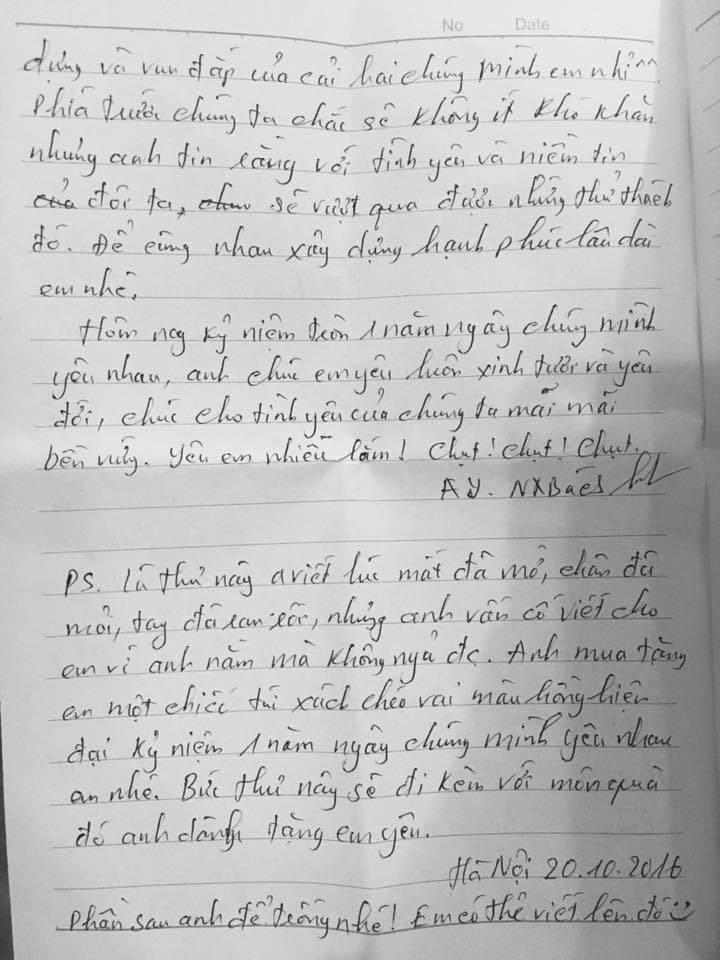 No Date
dựng và vun đắp của cả hai chúng mình em nhỉ ^^
Phía trước chúng ta chắc sẽ không ít khó khăn
nhưng anh tin rằng với tình yêu và niềm tin
của đôi ta, sẽ vượt qua được những thử thách
đó. Để cùng nhau xây dựng hạnh phúc lâu dài
em nhé.
Hôm nay kỷ niệm tròn 1 năm ngày chúng mình
yêu nhau, anh chúc em yêu luôn xinh tươi và yêu
đời, chúc cho tình yêu của chúng ta mãi mãi
bền vững. Yêu em nhiều lắm! Chụt! Chụt! Chụt.
AY. NXBách
PS. Lá thư này a viết lúc mắt đã mờ, chân đã
mỏi, tay đã run rồi, nhưng anh vẫn cố viết cho
em vì anh nằm mà không ngủ đc. Anh mua tặng
em một chiếc túi xách chéo vai màu hồng hiện
đại kỷ niệm 1 năm ngày chúng mình yêu nhau
em nhé. Bức thư này sẽ đi kèm với món quà
đó anh dành tặng em yêu.
Hà Nội 20.10.2016
Phần sau anh để trống nhé! Em có thể viết lên đó